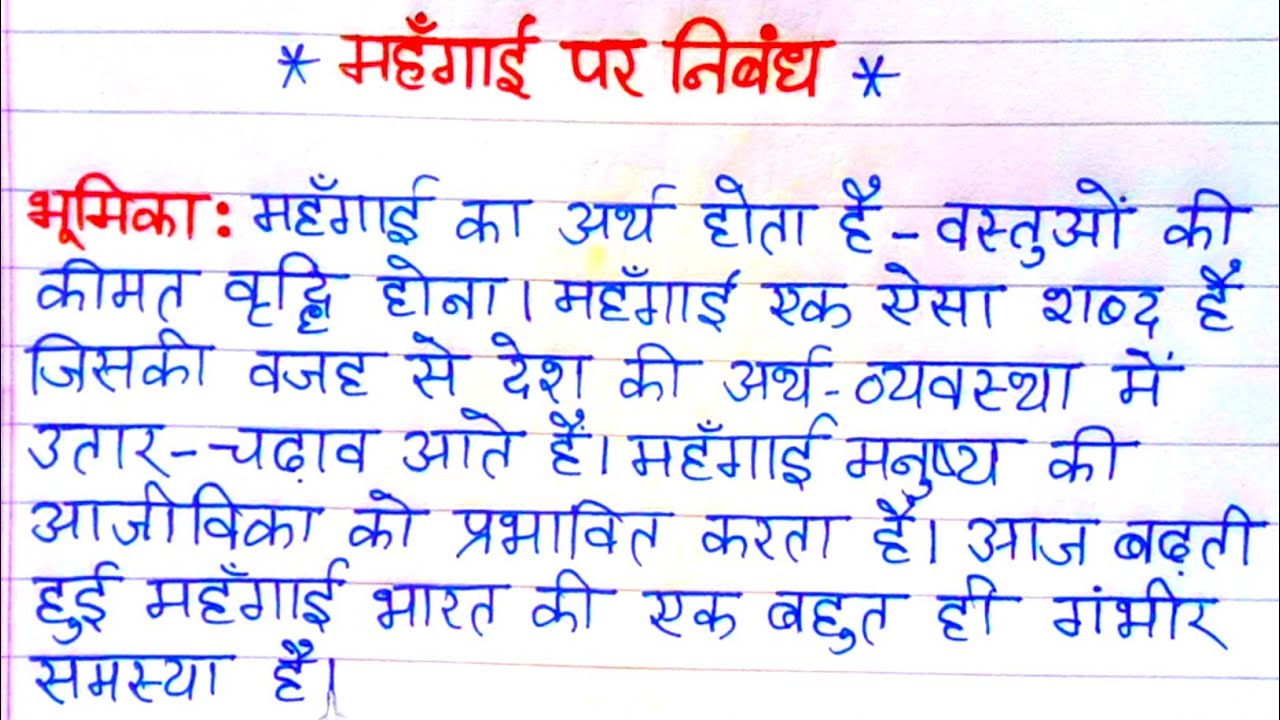 * महँगाई पर निबंध *
भूमिका: महँगाई का अर्थ होता है - वस्तुओं की
कीमत वृद्धि होना। महँगाई एक ऐसा शब्द है
जिसकी वजह से देश की अर्थ-व्यवस्था में
उतार-चढ़ाव आते हैं। महँगाई मनुष्य की
आजीविका को प्रभावित करता है। आज बढ़ती
हुई महँगाई भारत की एक बहुत ही गंभीर
समस्या है।